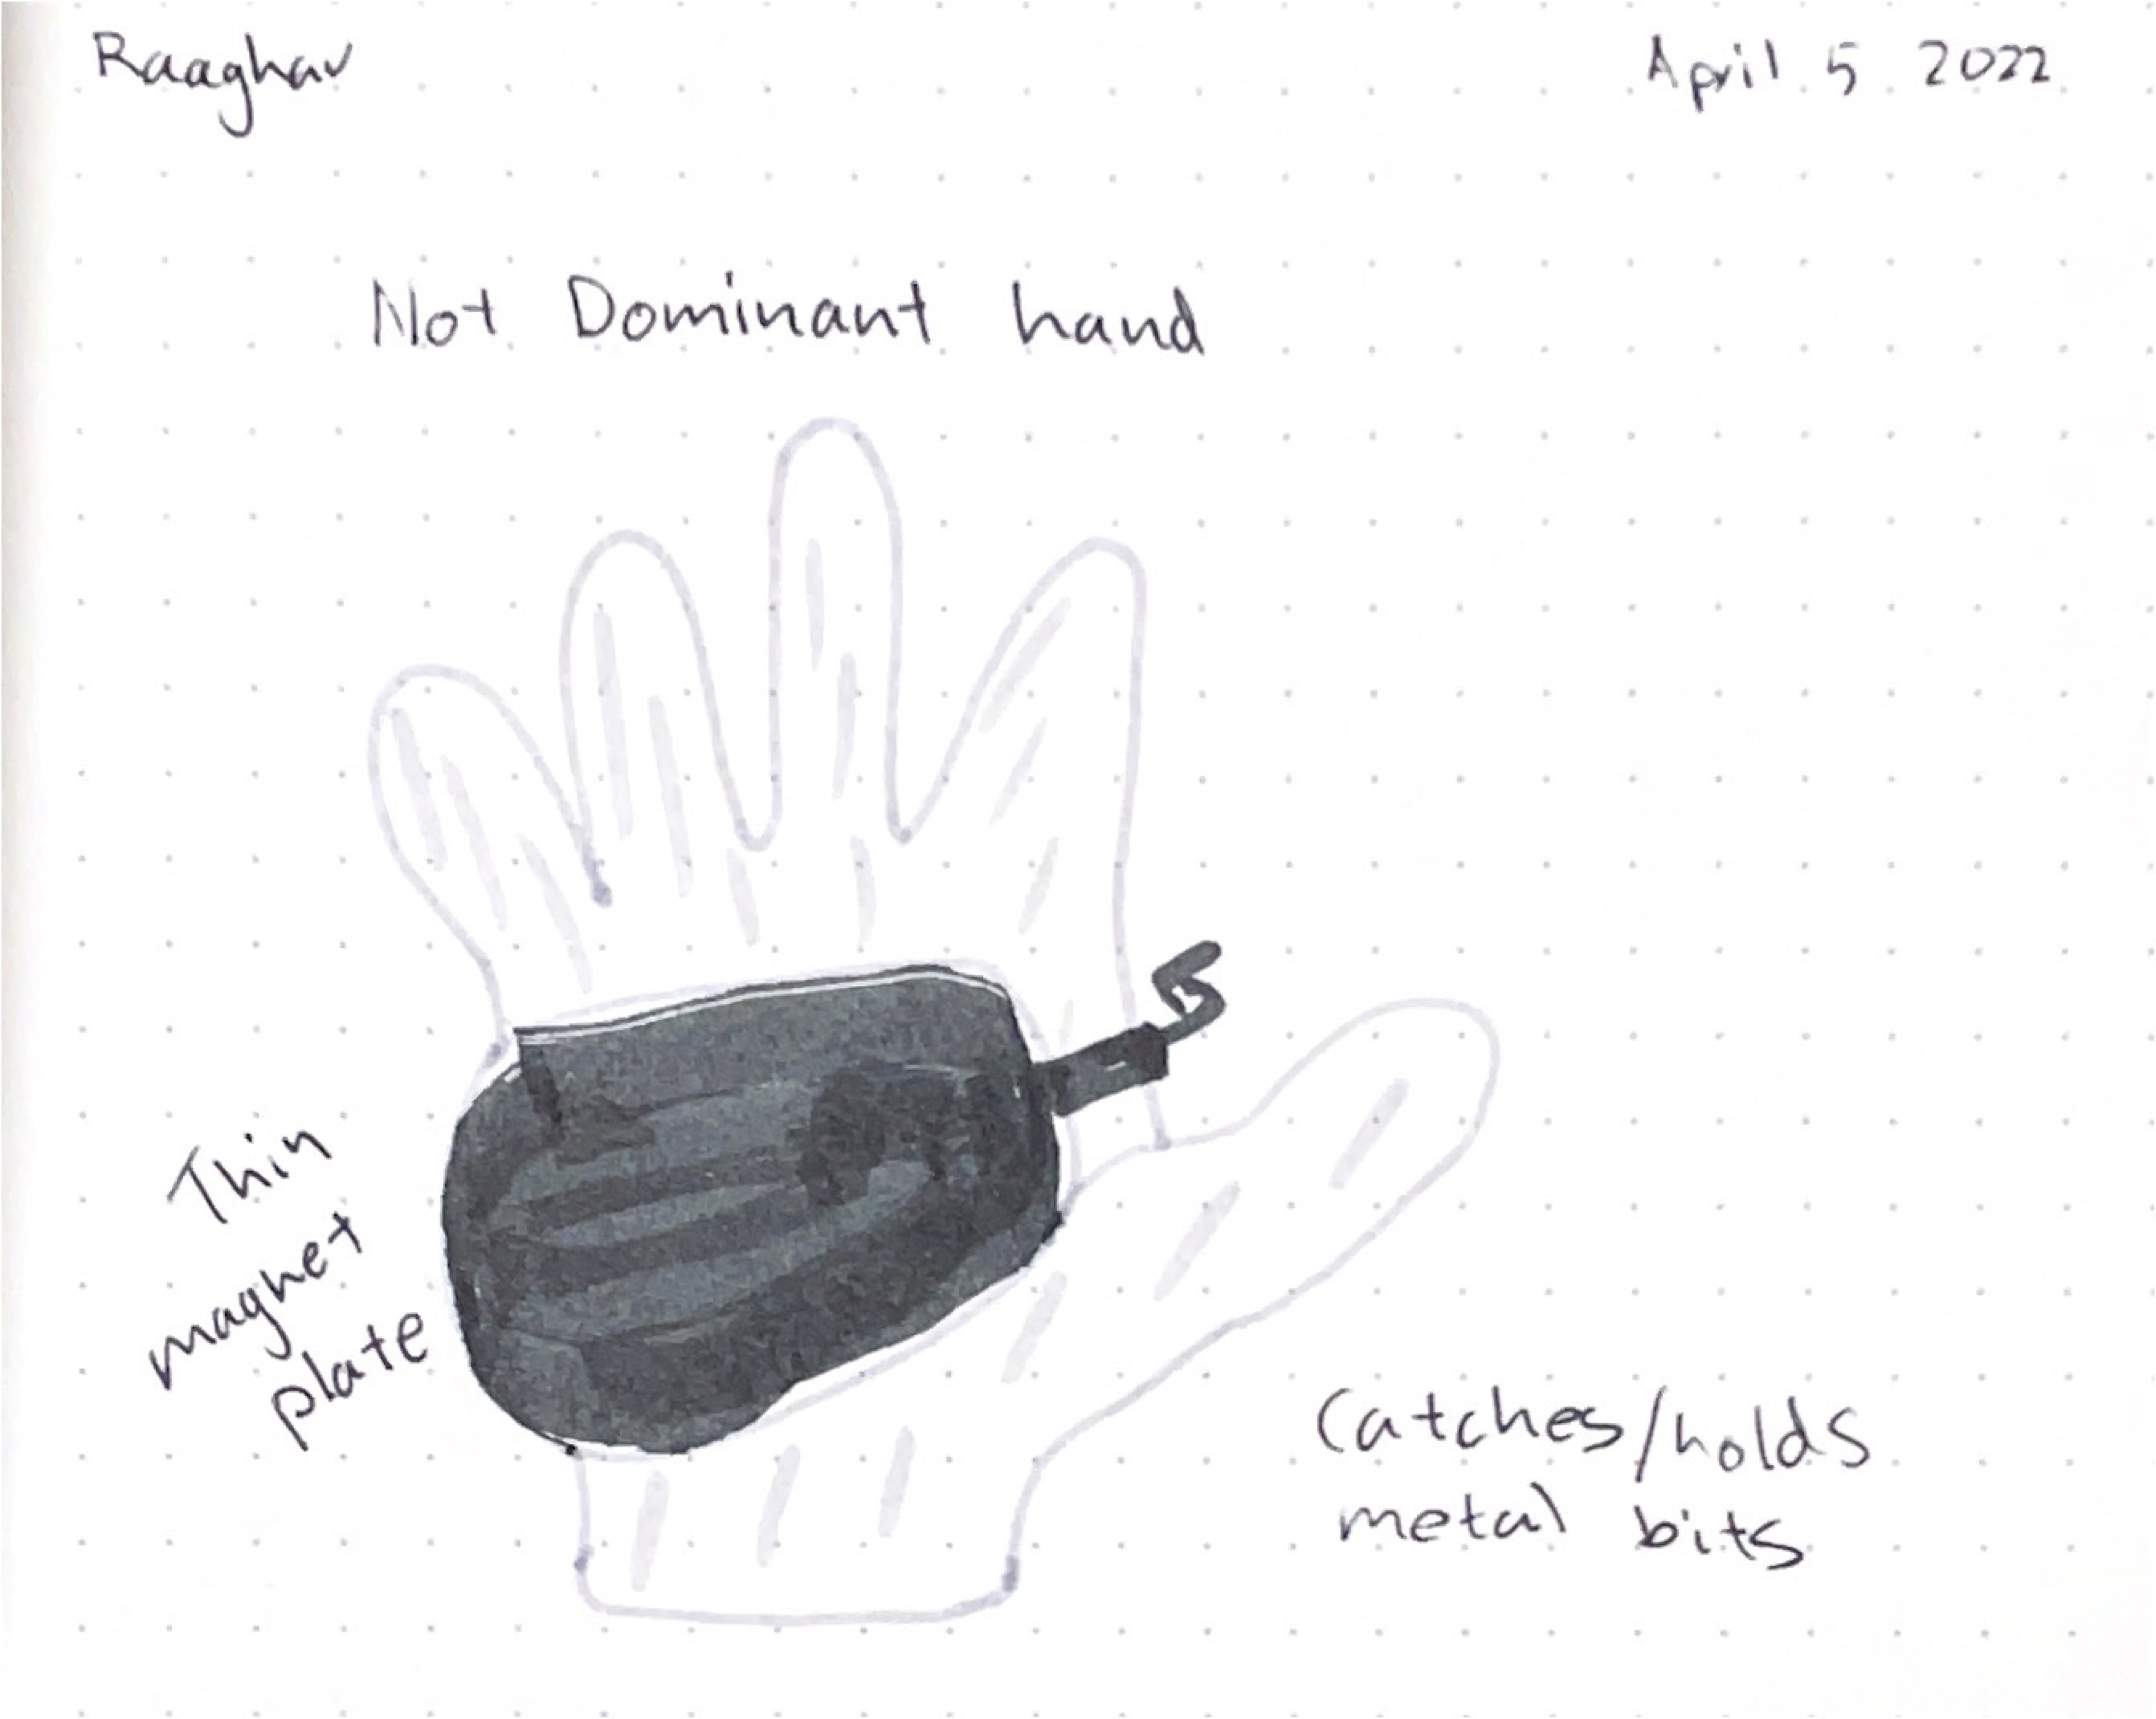 Raaghav
April 5 2022
Not Dominant hand
Thin
magnet
plate
Catches/holds
metal bits